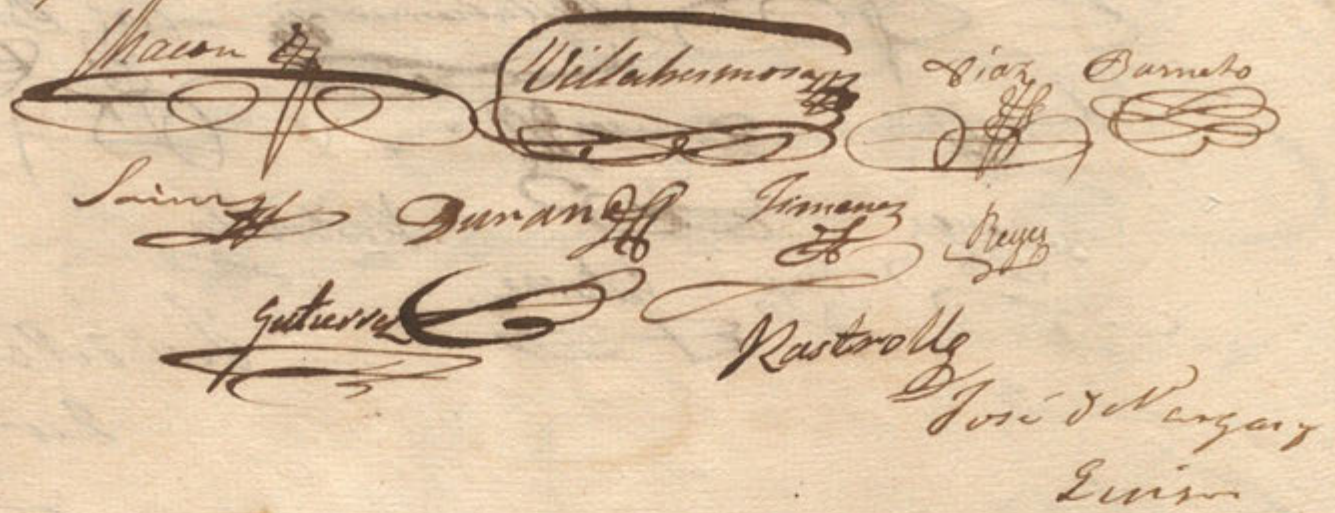 Chacon Villahermosa Diaz Barneto
Sainz Duran Jimenez Reyes
Gutierrez Rastrollo
José de Vargas y